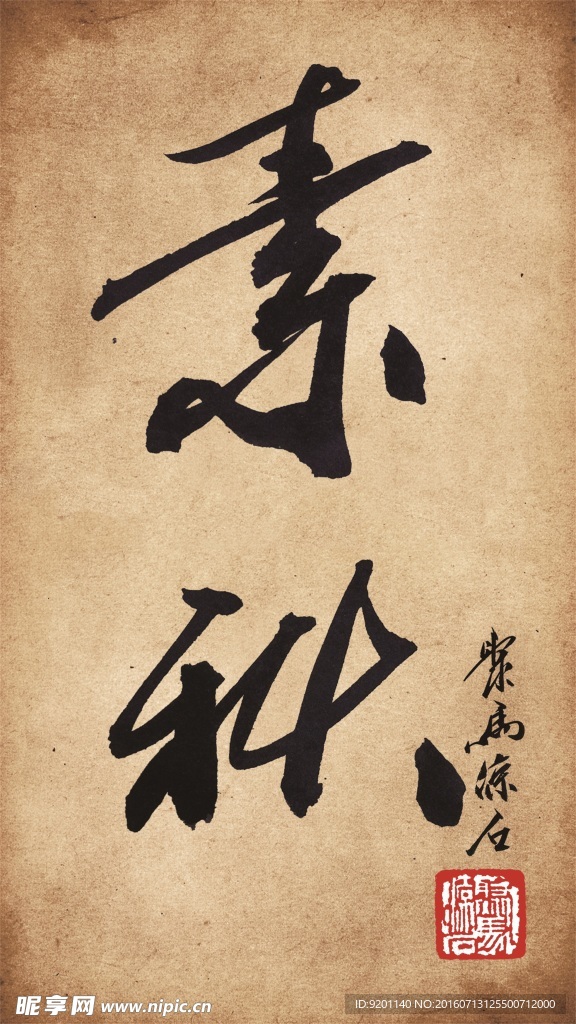 素
秋
昵享网 www.nipic.cn
ID:9201140 NO:20160713125500712000